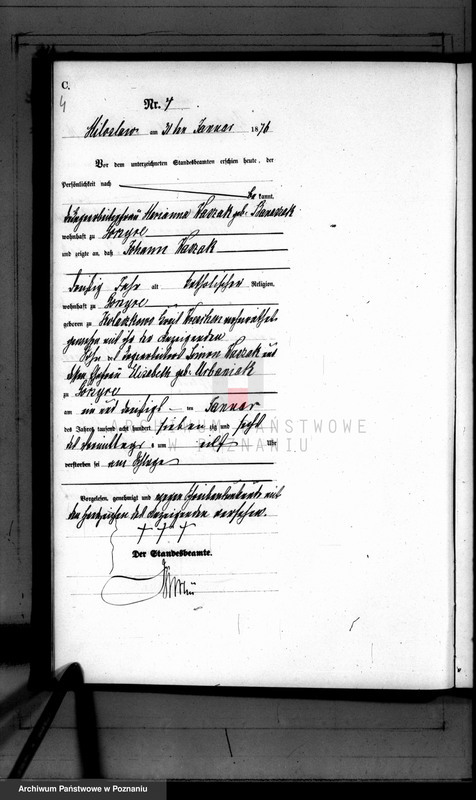 C.
4
Nr. 4
Miloslaw am 31ten Januar 1876
Vor dem unterzeichneten Standesbeamten erschien heute, der
Persönlichkeit nach
be kannt,
Marianna Kaczak geb. Banaszak
wohnhaft zu
und zeigte an, daß Johann Kaczak
dreißig Jahr alt katholischer Religion,
wohnhaft zu
geboren zu Kreis Wreschen
gewesen mit der Anzeigenden
Sohn des Simon Kaczak und
dessen Ehefrau Elisabeth geb. Urbaniak
zu
am ein und dreißigsten Januar
des Jahres tausend acht hundert sieben zig und sechs
des Vormittags um elf Uhr
verstorben sei am Schlage
ARCHIWUM PAŃSTWOWE
W POZNANIU
Vorgelesen, genehmigt und wegen Schreibensunkunde mit
den Handzeichen des Anzeigenden versehen.
† † †
Der Standesbeamte.
Archiwum Państwowe w Poznaniu